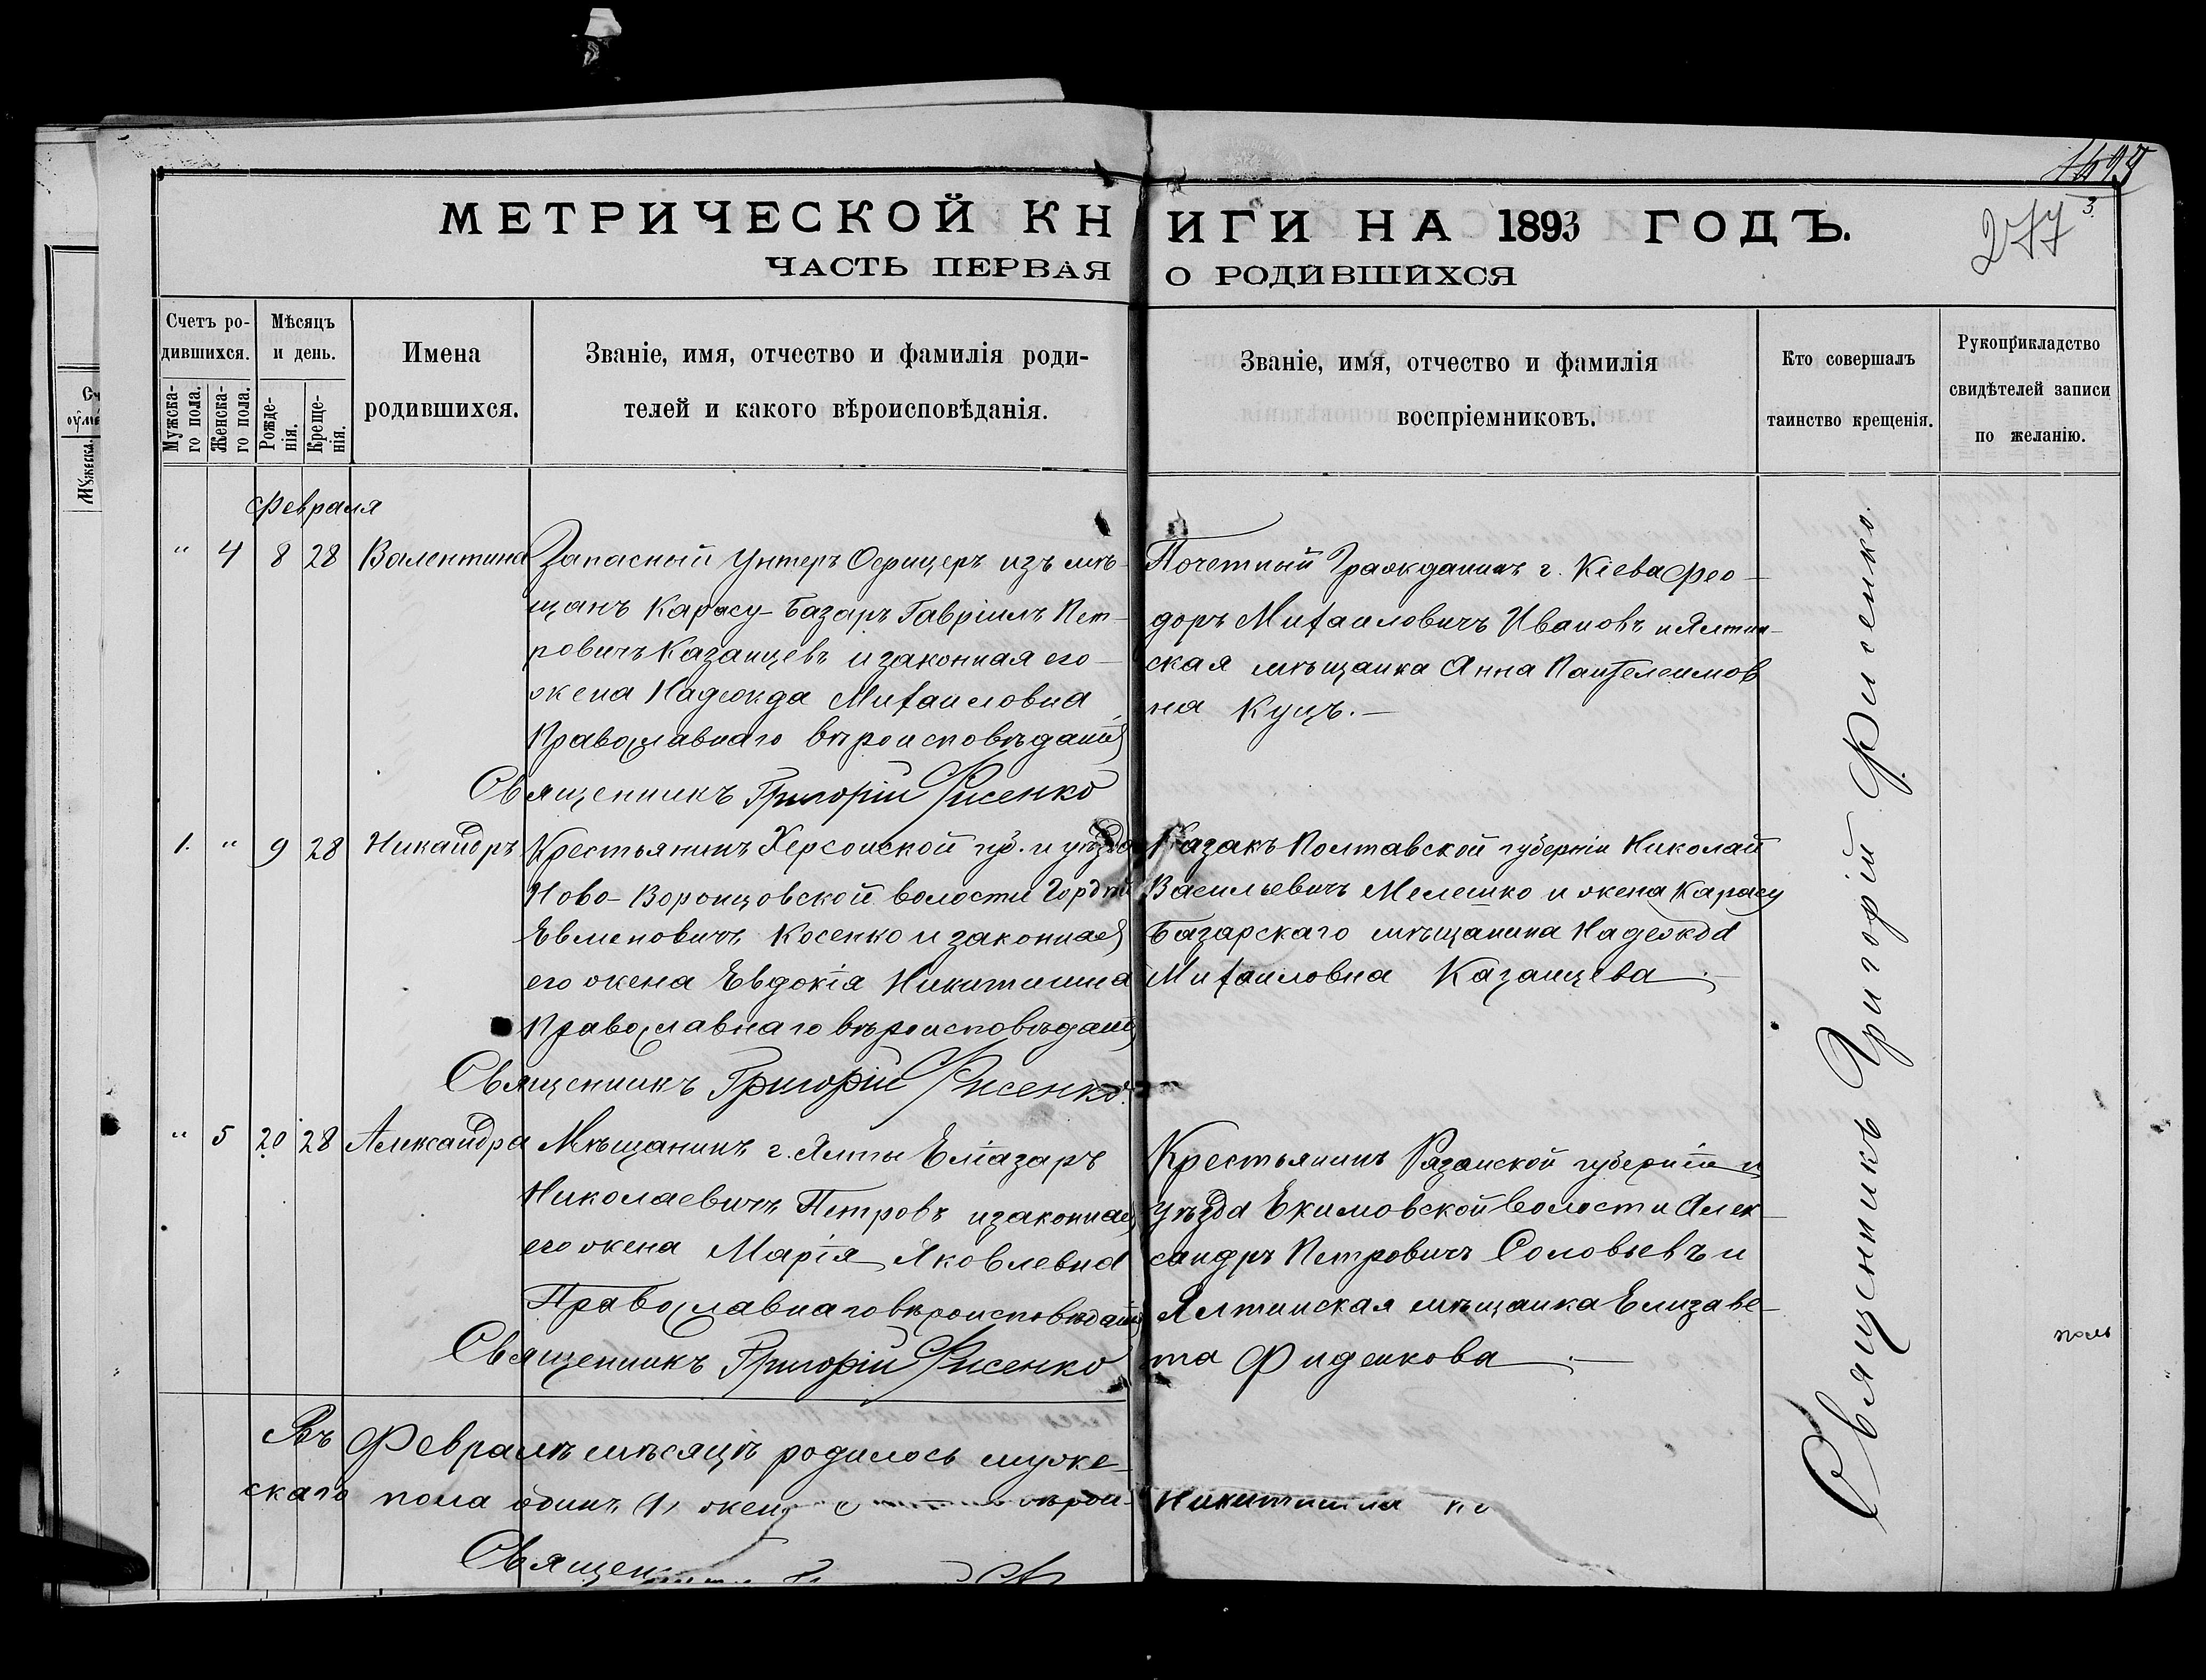 1493
277 3.
МЕТРИЧЕСКОЙ КНИГИ НА 1893 ГОДЪ.
ЧАСТЬ ПЕРВАЯ О РОДИВШИХСЯ
Счетъ родившихся.
Мужскаго пола.
Женскаго пола.
Мѣсяцъ и день.
Рожденія.
Крещенія.
Имена родившихся.
Званіе, имя, отчество и фамилія родителей и какого вѣроисповѣданія.
Званіе, имя, отчество и фамилія воспріемниковъ.
Кто совершалъ таинство крещенія.
Рукоприкладство свидѣтелей записи по желанію.
Февраля
" 4 8 28 Валентина
Запасный Унтеръ Офицеръ изъ мѣ-
щанъ Карасу-Базаръ Гавріилъ Пет-
ровичъ Казанцевъ и законная его
жена Надежда Михаиловна
Православнаго вѣроисповѣданія
Священникъ Григорій Фисенко
Почетный Гражданинъ г. Кіева Фео-
доръ Михаиловичъ Ивановъ и Ялтин-
ская мѣщанка Анна Пантелеимов
на Куцъ.—
1. " 9 28 Никандръ
Крестьянинъ Херсонской губ. и уѣзда
Ново-Воронцовской волости Гордій
Евменовичъ Косенко и законная
его жена Евдокія Никитишна
Православнаго вѣроисповѣданія
Священникъ Григорій Фисенко.
Казакъ Полтавской губерніи Николай
Васильевичъ Мелешко и жена Карасу
Базарскаго мѣщанина Надежда
Михаиловна Казанцева.—
" 5 20 28 Александра
Мѣщанинъ г. Ялты Еліазаръ
Николаевичъ Петровъ и законная
его жена Марія Яковлевна
Православнаго вѣроисповѣданія
Священникъ Григорій Фисенко
Крестьянинъ Рязанской губерніи и
уѣзда Екимовской волости Алек-
сандръ Петровичъ Соловьевъ и
Ялтинская мѣщанка Елизаве-
та Фиденкова.—
Священникъ Григорій Фисенко.
Въ Февралѣ мѣсяцѣ родилось муже-
скаго пола одинъ (1) жен
Никитишна
Священ